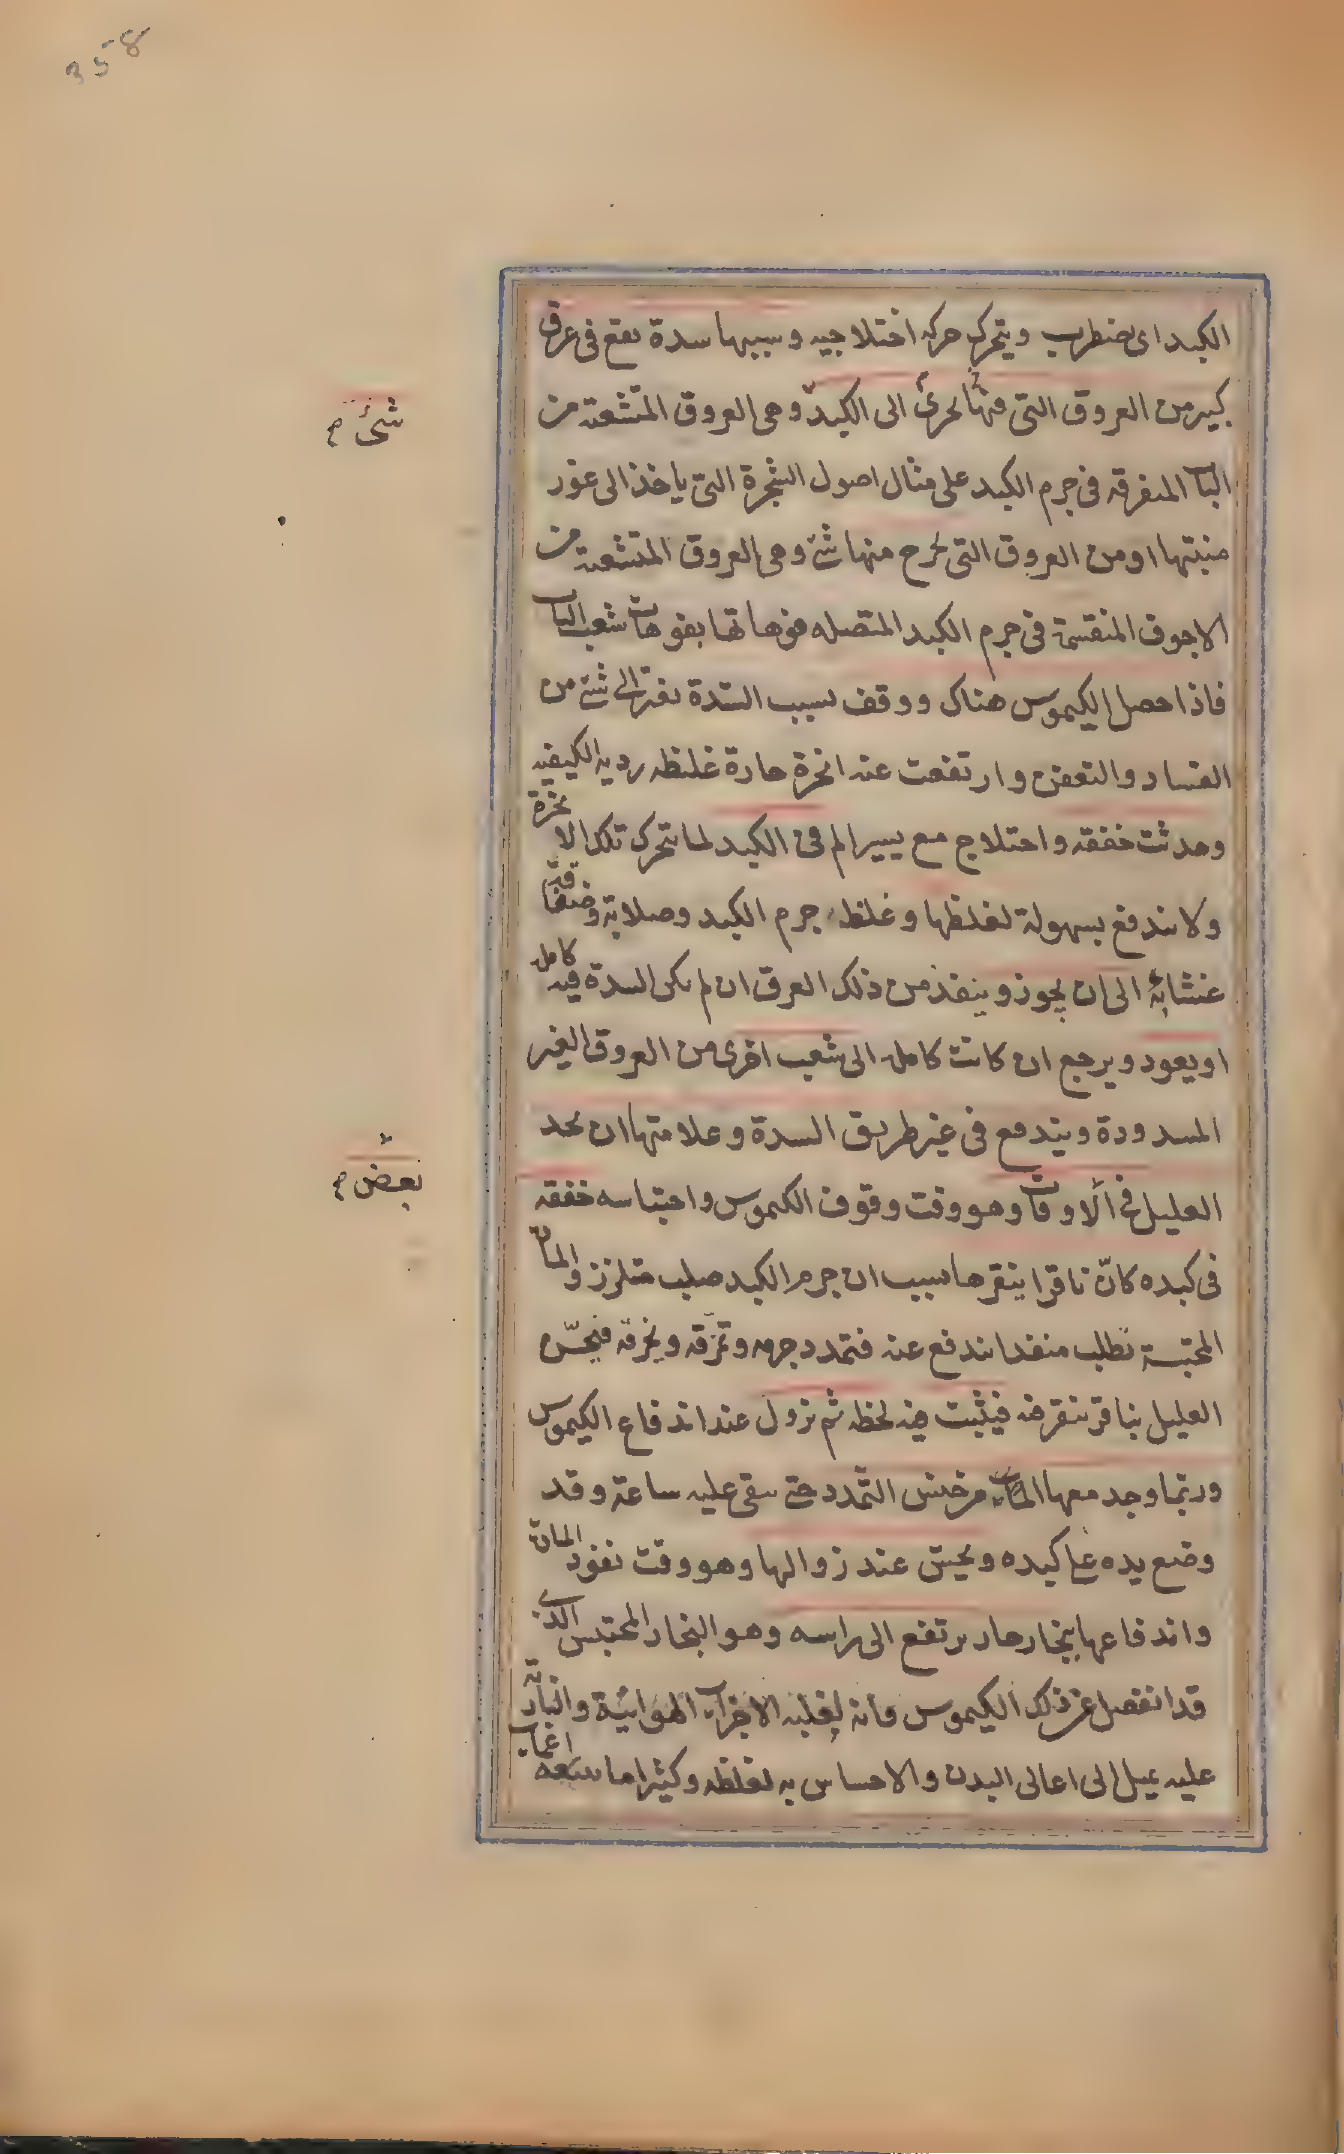 358
الكبد اى يضطرب ويتحرك حركه اختلاجيه وسببها سدة تقع فى عرق
كبير من العروق التى فيها يجرى الى الكبد وهى العروق المتشعبة من
الباب المتفرقه فى جرم الكبد على مثال اصول الشجرة التى ياخذ الى غور
منبتها او من العروق التى يخرج منها شئ وهى العروق المتشعبة من
الاجوف المنقسمة فى جرم الكبد المتصله فوهاتها بفوهات شعب الباب
فاذا حصل الكيموس هناك ووقف بسبب السّدة تغير الى شئ من
الفساد والتعفن وارتفعت عنه ابخرة حارة غليظه رديه الكيفيه
وحدثت خفقه واختلاج مع يسير الم فى الكبد لما يتحرك تلك الابخرة
ولا يندفع بسهولة لغلظها وغلظ جرم الكبد وصلابته وضفاقة
غشائه الى ان يجوز وينفذ من ذلك العرق ان لم يكن السدة فيه كامله
او يعود ويرجع ان كانت كامله الى شعب اخرى من العروق الغير
المسدودة ويندفع فى غير طريق السدة وعلامتها ان يجد
العليل فى الاوقات وهو وقت وقوف الكيموس واحتباسه خفقه
فى كبده كانّ ناقرا ينقرها بسبب ان جرم الكبد صلب متلزز والمادة
المحتبسة تطلب منفذا يندفع عنه فتمدد جرمه وتمزقه ويخرقه فيحسّ
العليل بناقر ينقر فيه فيثبت فيه لحظه ثم تزول عند اندفاع الكيموس
وربما وجد معها الماب من جنس التمدد حتى يبقى عليه ساعة وقد
وضع يده على كبده ويحسّ عند زوالها وهو وقت نفوذ المادة
واندفاعها ببخار حار يرتفع الى راسه وهو البخار المحتبس الذى
قد انفصل عن ذلك الكيموس فانه لغلبه الاجزاء الهوائية والنارية
عليه يميل الى اعالى البدن والاحساس به لغلظه وكثيرا ما يتبعه اغماء
شئ ص
بعض ص